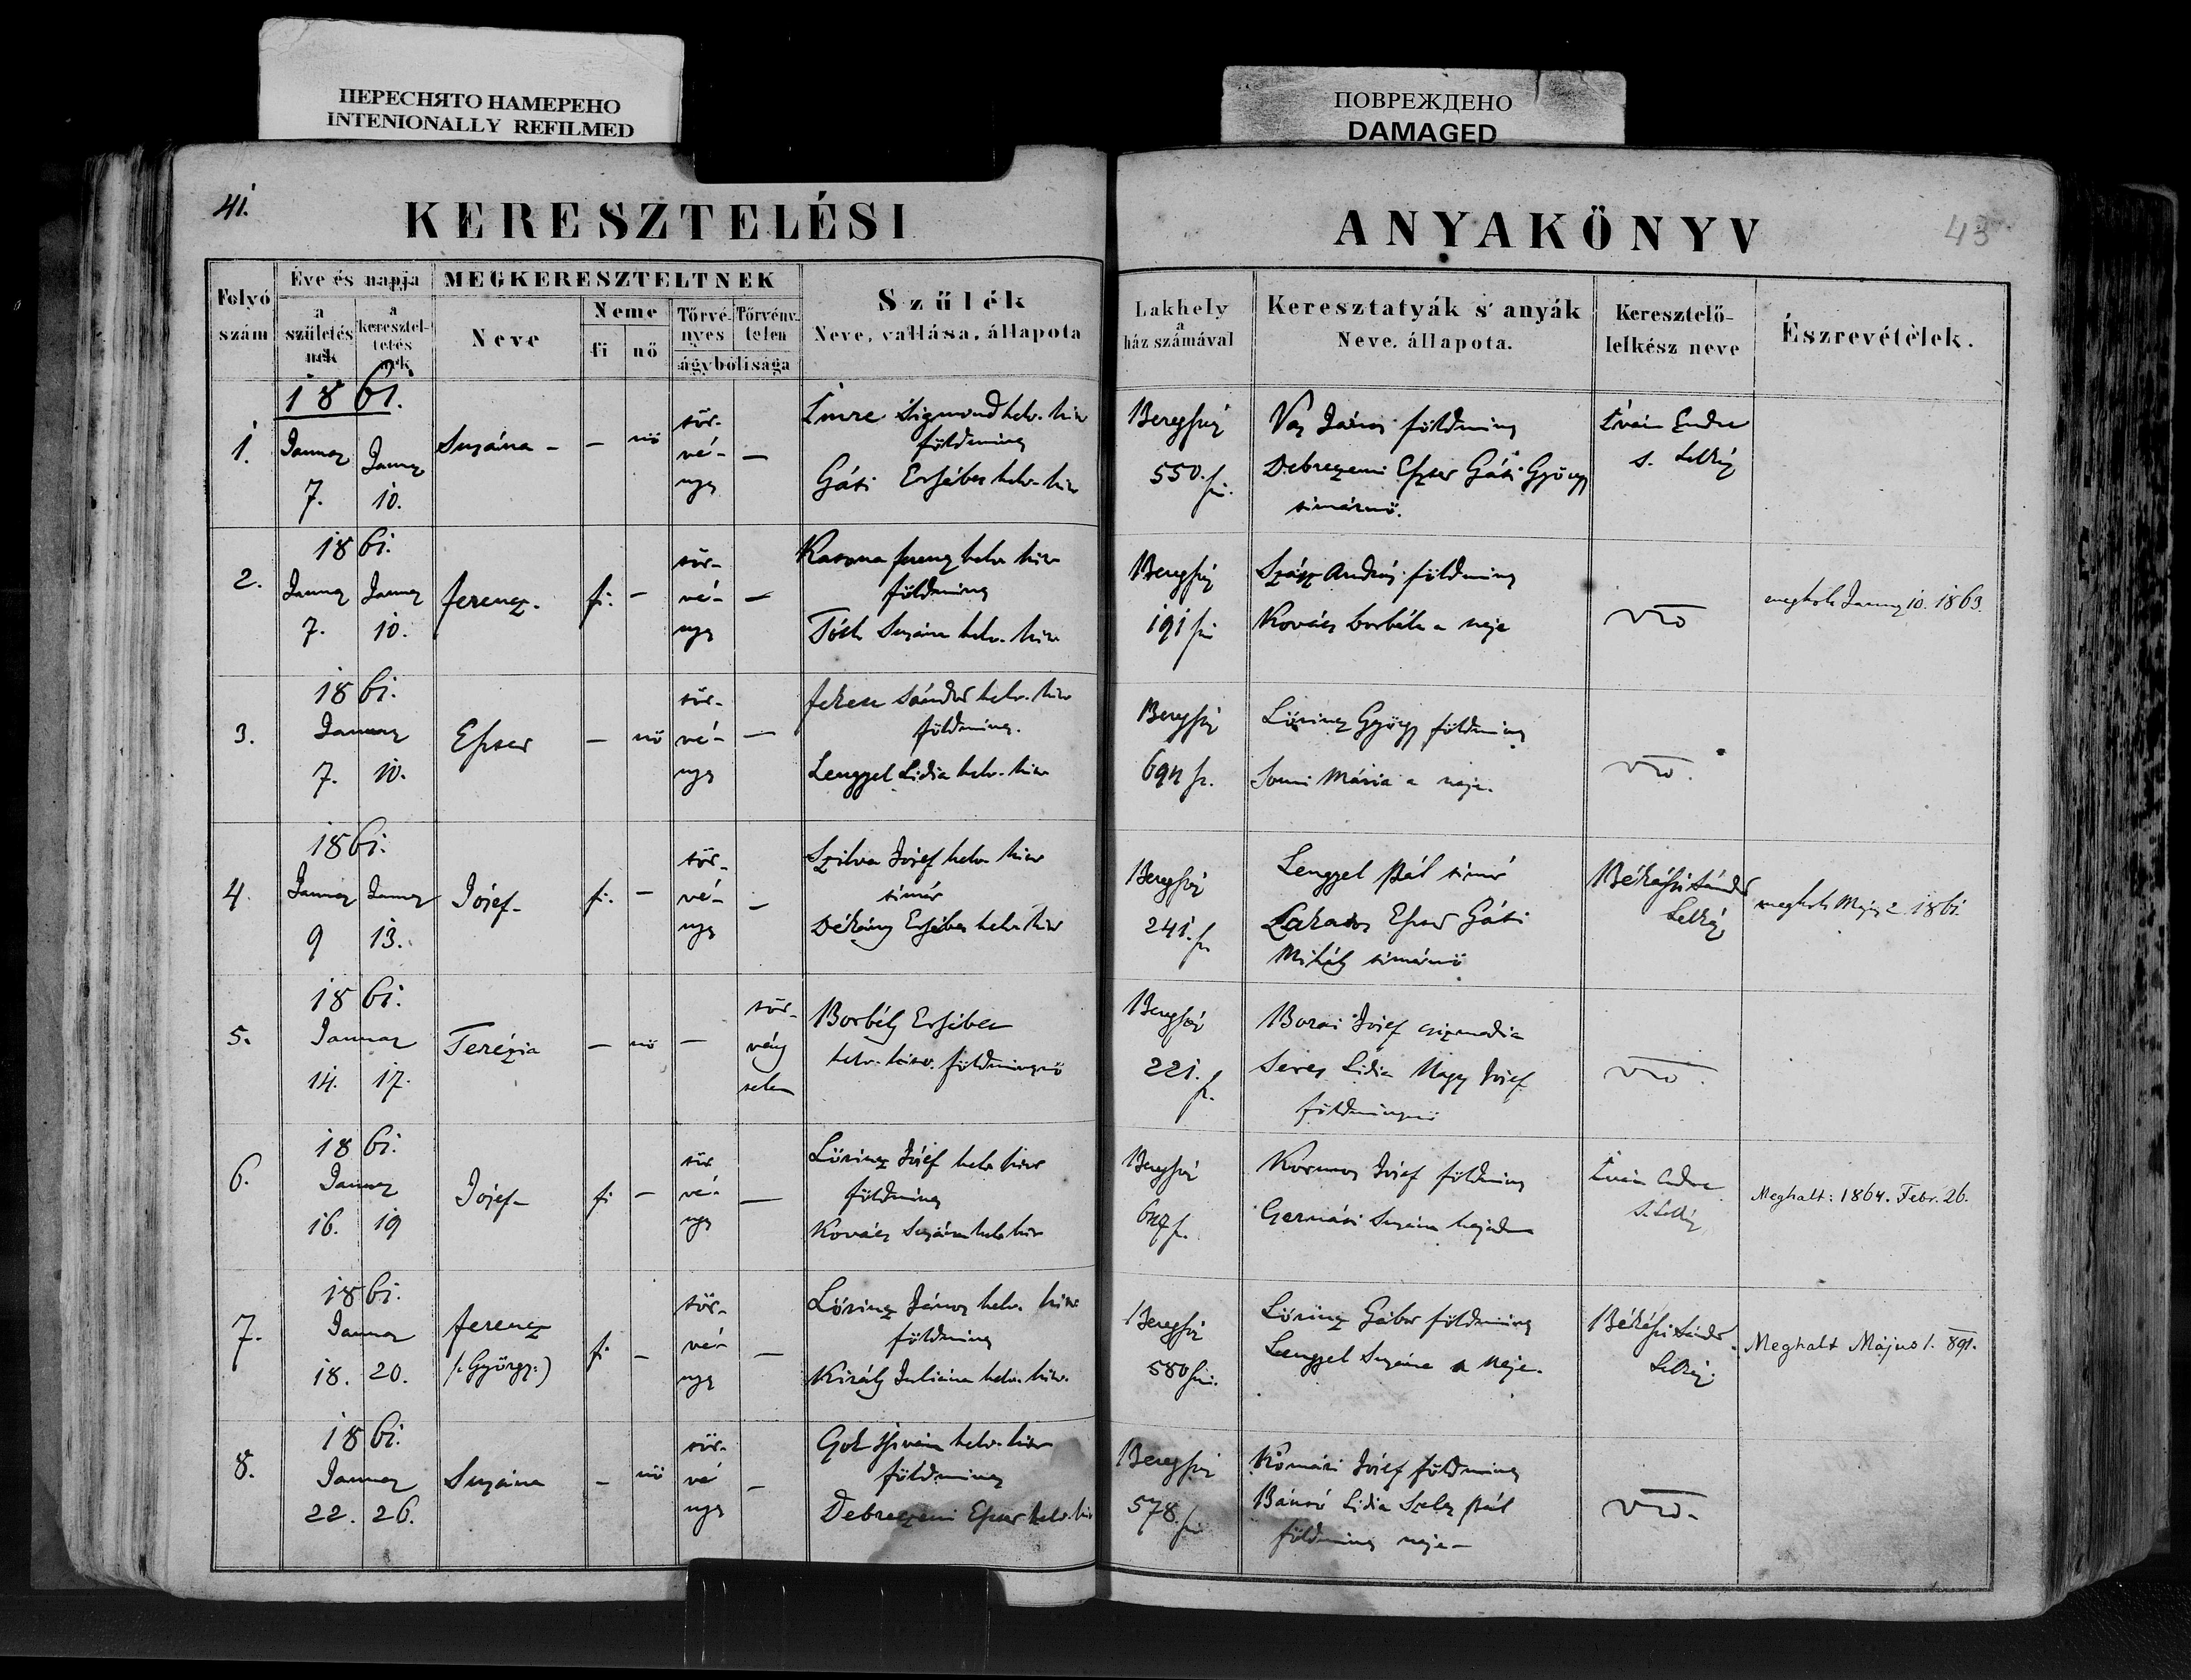 ПЕРЕСНЯТО НАМЕРЕНО
INTENIONALLY REFILMED
ПОВРЕЖДЕНО
DAMAGED
41.
KERESZTELÉSI
ANYAKÖNYV
43
Folyó szám
Éve és napja
a születés nek
a keresztel- tetés nek
MEGKERESZTELTNEK
Neve
Neme
fi
nő
Törvé- nyes
Törvény- telen
ágybólisága
Szűlék
Neve, vallása, állapota
Lakhely
a
ház számával
Keresztatyák s' anyák
Neve, állapota.
Keresztelő-
lelkész neve
Észrevételek.
1861.
1.
Januar 7.
Januar 10.
Suzána -
-
nö
tör-
vé-
nyes
-
Imre Sigmond helv. hitv
földmives
Gáti Ersébet helv. hitv
Beregszáz
550. sz.
Vas János földmives
Debreczeni Eszter Gáti György
timárnö.
Iván Endre
s. Lelkész
1861.
2.
Januar 7.
Januar 10.
Ferencz.
fi.
-
tör-
vé-
nyes
-
Katona Ferencz helv. hitv
földmives
Tóth Suzána helv. hitv
Beregszáz
191 sz
Szász András földmives
Kovács Borbála a neje
meghalt Januar 10. 1863.
1861.
3.
Januar
7. 10.
Eszter
-
nö
tör-
vé-
nyes
-
Fekete Sándor helv. hitv
földmives.
Lengyel Lidia helv. hitv
Beregszáz
Lörincz György földmives
Mária a neje.
1861.
4.
Januar 9
Januar 13.
Jósef-
fi.
-
tör-
vé-
nyes
-
Szilva Jósef helv hitv
timár
Dékány Ersébet helv. hitv
Beregszáz
241. sz.
Lengyel Pál timár
Lakatos Eszter Gáti
Mihály timárnö
Békássi Sándor
Lelkész
meghalt Majus 2. 1861.
1861.
5.
Januar
14. 17.
Terézia
-
nö
-
tör-
vény
telen
Borbély Ersébet
helv. hitv. földmivesnö
Beregszáz
221. sz.
Jósef csizmadia
Seres Lidia Nagy Jósef
földmivesnö
1861.
6.
Januar
16. 19
Jósef-
fi
-
tör
vé-
nyes
-
Lörincz Jósef helv hitv
földmives
Kovács Suzána helv hitv
Beregszáz
Kormos Jósef földmives
Suzána hajadon
Iván Endre
s. Lelkész
Meghalt: 1864. Febr. 26.
1861.
7.
Januar
18. 20.
Ferencz
(: György :)
fi
-
tör-
vé-
nyes
-
Lörincz János helv. hitv.
földmives
Király Juliána helv. hitv.
Beregszáz
580 sz.
Lörincz Gábor földmives
Lengyel Suzána a neje.
Békássi Sándor
Lelkész.
Meghalt Május 1. 891.
1861.
8.
Januar
22. 26.
Suzána
-
nö
tör-
vé
nyes
-
István helv. hitv
földmives
Debreczeni Eszter helv. hitv
Beregszáz
578. sz
Jósef földmives
Lidia Pál
földmives neje-